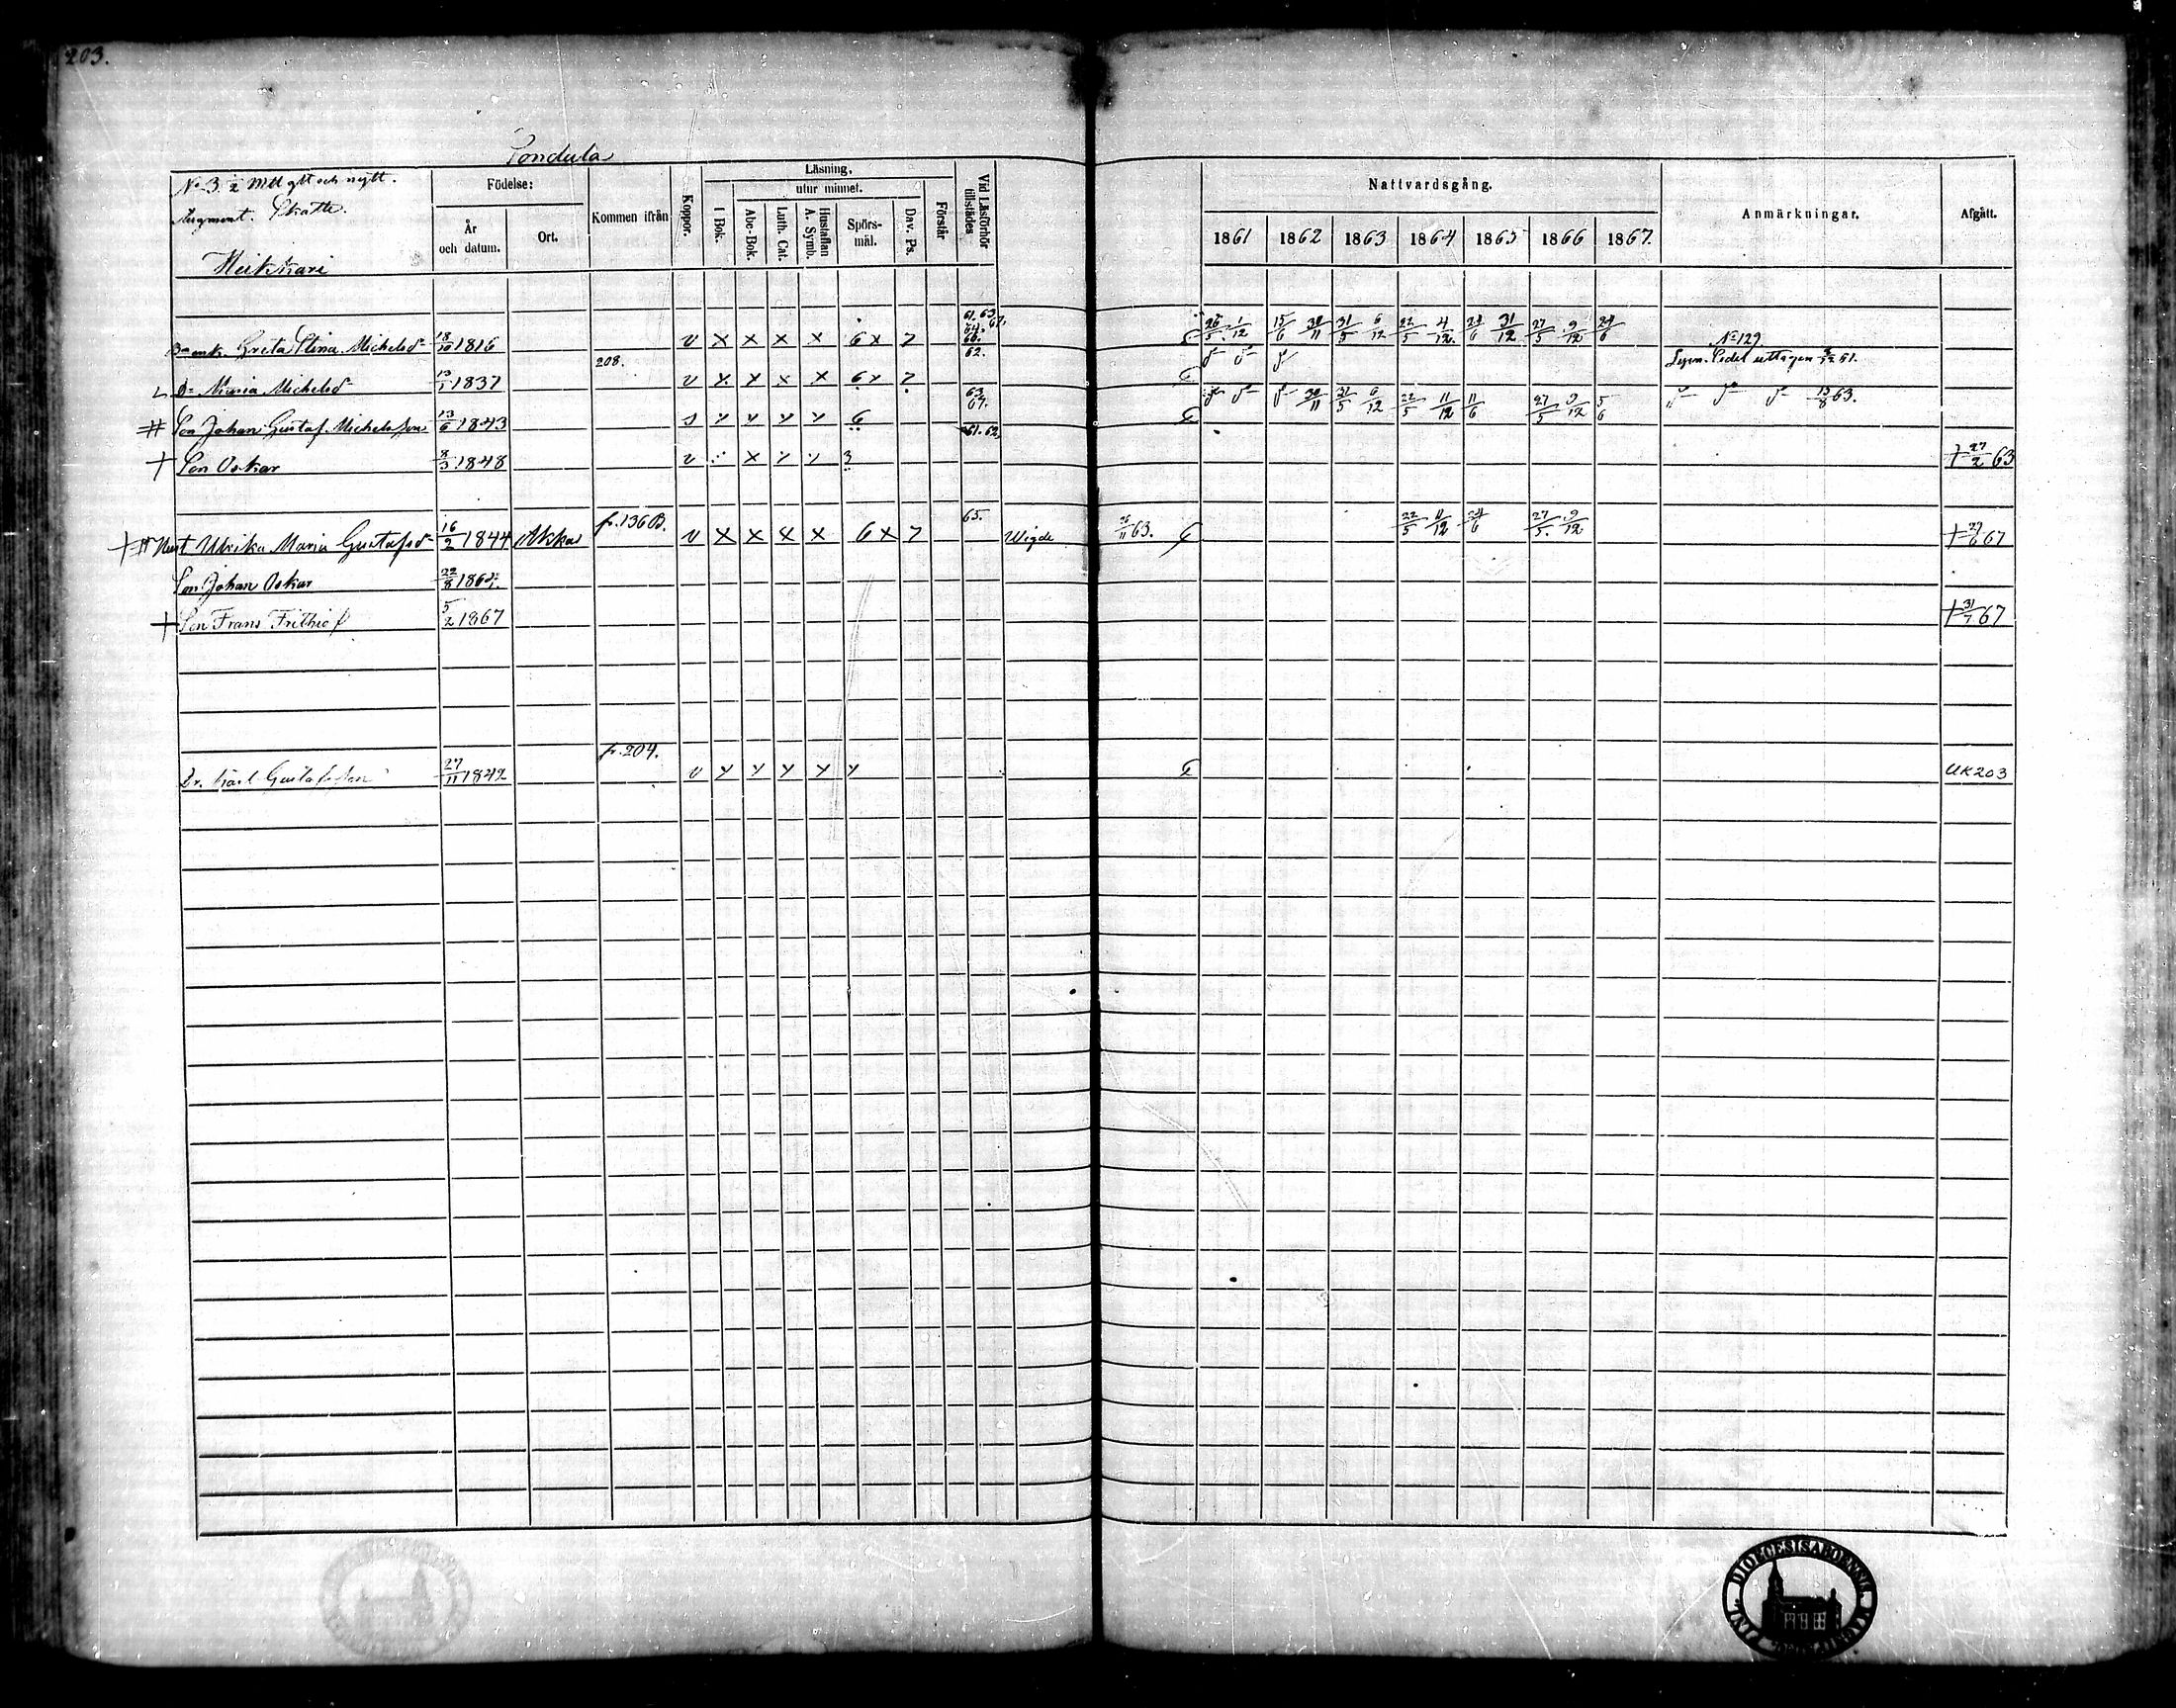 203.
No 3. ½ Mtl gtt och nytt.
Augment. Skatte.
Heikkari
Födelse:
År och datum.
Ort.
Kommen ifrån
Koppor.
Läsning,
utur minnet.
I Bok.
Abc-Bok.
Luth. Cat.
Hustaflan A. Symb.
Spörs-mål.
Dav. Ps.
Förstår
Vid Läsförhör tillstädes
Nattvardsgång.
1861 1862 1863 1864 1865 1866 1867.
Anmärkningar.
Afgått.
Greta Stina Michelsdr 18/10 1816 v x x x x 6 x 7 26/5 1/12 15/6 30/11 31/5 6/12 22/5 4/12 24/6 31/12 27/5 9/12 24/6
No 129
Dr Maria Michelsdr 13/1 1837 208. v x x x x 6 x 7 62.
Son Johan Gustaf Michelsson 13/6 1843 6 63. 67. 30/11 31/5 6/12 22/5 11/12 11/6 27/5 9/12 5/6 13/8 63.
† Son Oskar 8/3 1848 v x 3 61. 62. † 27/2 63
†# Hust Ulrika Maria Gustafsdr 16/2 1844 Akkas fr. 136 B. v x x x x 6 x 7 65. Wigde 26/11 63. 22/5 11/12 24/6 27/5 9/12 † 27/6 67
Son Johan Oskar 22/8 1865.
† Son Frans Frithiof 5/2 1867 † 31/7 67
Dr. Karl Gustafsson 27/11 1842 fr. 204. v UK 203
DIOECESIS ABOENSIS